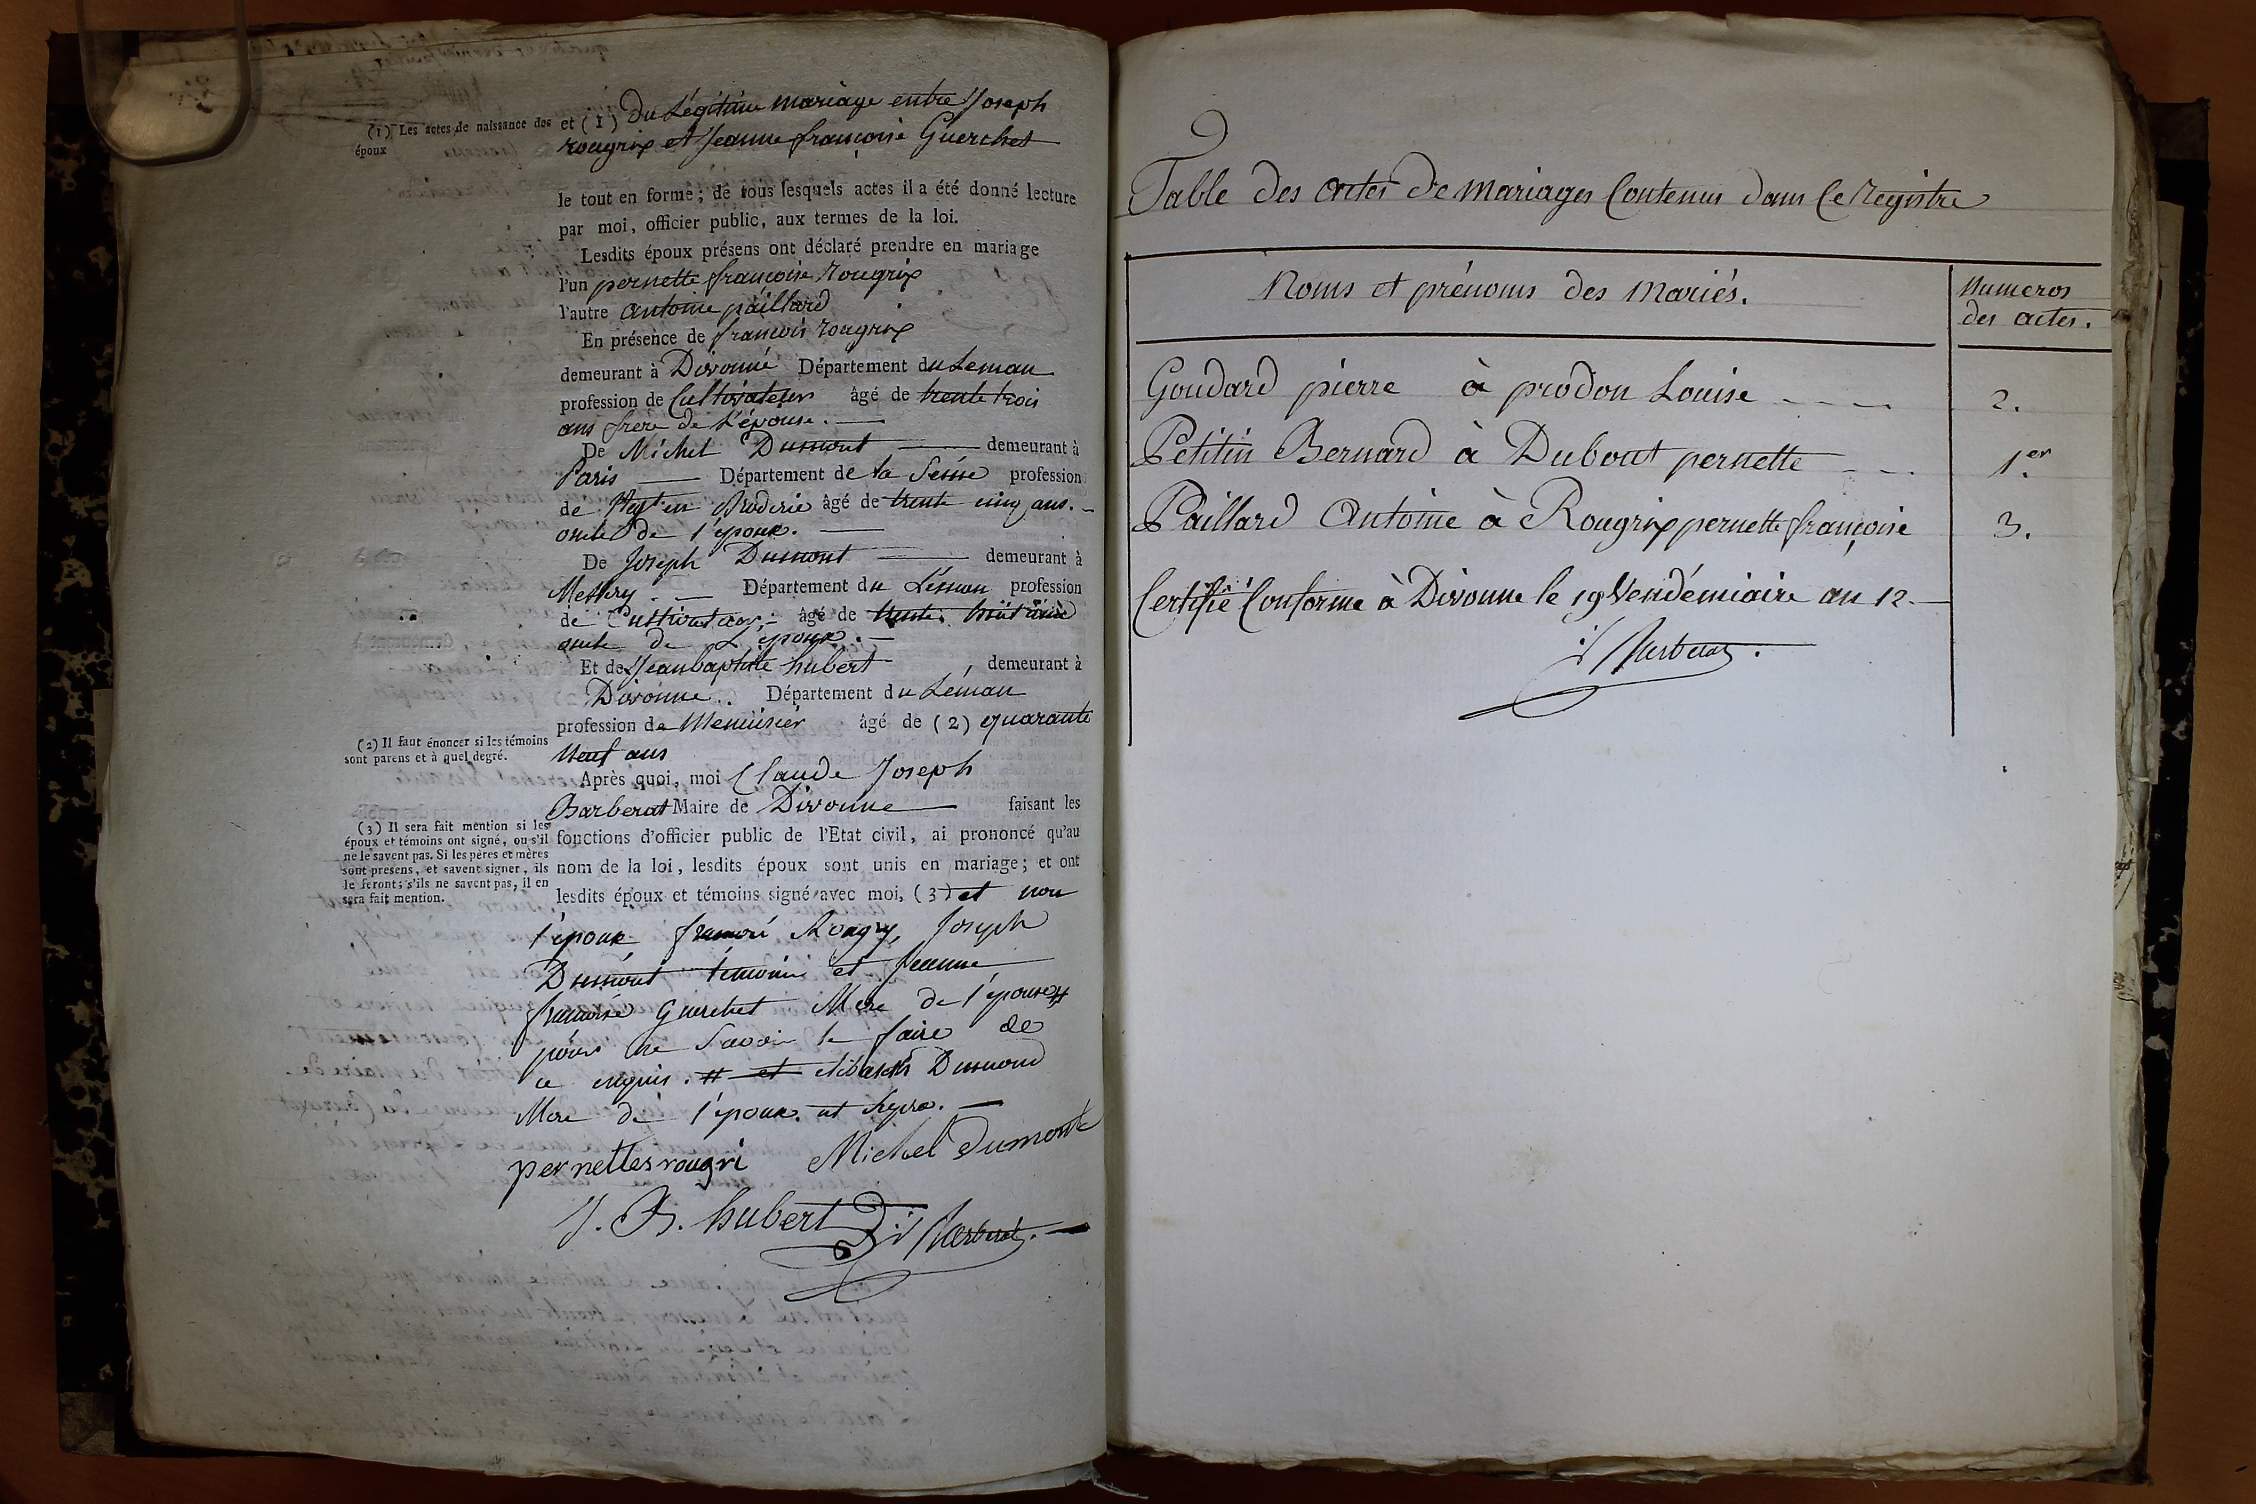 (1) Les actes de naissance des
époux
et (1) Du Légitime mariage entre Joseph
rougrix et Jeanne françoise Guerchet
le tout en forme; de tous lesquels actes il a été donné lecture
par moi, officier public, aux termes de la loi.
Lesdits époux présens ont déclaré prendre en mariage
l'un pernette françoise rougrix
l'autre antoine paillard
En présence de francois rougrix
demeurant à Divonne Département du Leman
profession de Cultivateur âgé de trente trois
ans frere de L'épouse.
De Michel Dumont demeurant à
Paris Département de la Seine profession
de en Broderie âgé de trente cinq ans.
oncle de l'epoux.
De Joseph Dumont demeurant à
Messery. Département du Léman profession
de Cultivateur, âgé de trente huit ans
oncle de L'epoux.
Et de Jean baptiste hubert, demeurant à
Divonne. Département du Léman
profession de Menuisier âgé de (2) quarante
(2) Il faut énoncer si les témoins
sont parens et à quel degré.
neuf ans
Après quoi, moi Claude Joseph
Barberat Maire de Divonne faisant les
(3) Il sera fait mention si les
époux et témoins ont signé, ou s'il
ne le savent pas. Si les pères et mères
sont presens, et savent signer, ils
le feront; s'ils ne savent pas, il en
sera fait mention.
fonctions d'officier public de l'Etat civil, ai prononcé qu'au
nom de la loi, lesdits époux sont unis en mariage; et ont
lesdits époux et témoins signé avec moi, (3) et non
l'époux Rougry, Joseph
Dumont temoins et Jeanne
Guerchet Mere de l'epouse #
pour ne Savoir le faire de
ce enquis. # et Dumond
Mere de l'epoux.
pernettes rougri Michel Dumont
J. B. hubert Barberat.
Table des actes de mariages Contenus dans Ce Registre
Noms et prénoms des Mariés.
Numeros
des actes.
Goudard pierre à prodon Louise 2.
Petitin Bernard à Dubout pernette 1.er
Paillard Antoine à Rougrix pernette françoise 3.
Certifié Conforme à Divonne le 19 Vendémiaire an 12.
Barberat.